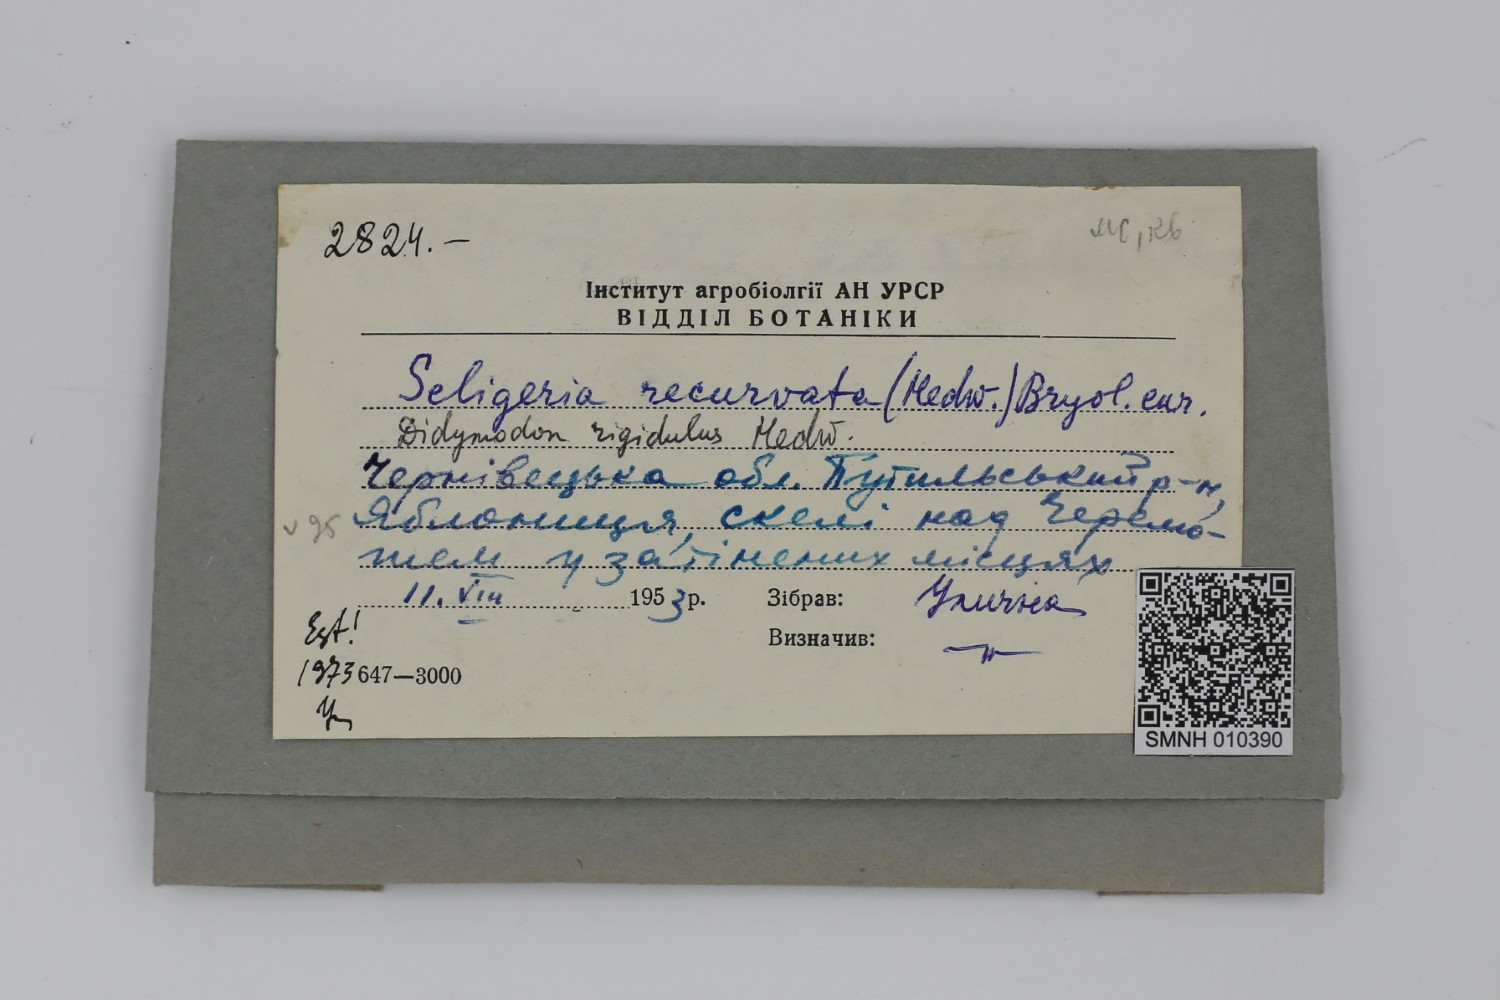 2824.—
Інститут агробіолгії АН УРСР
ВІДДІЛ БОТАНІКИ
Seligeria recurvata (Hedw.) Bryol. eur.
Didymodon rigidulus Hedw.
Чернівецька обл. Путильський р-н,
Яблониця, скелі над Черемо-
шем у затінених місцях
11. VIII 1953 р. Зібрав: Улична
Визначив: —"—
Est!
1973 647—3000
SMNH 010390